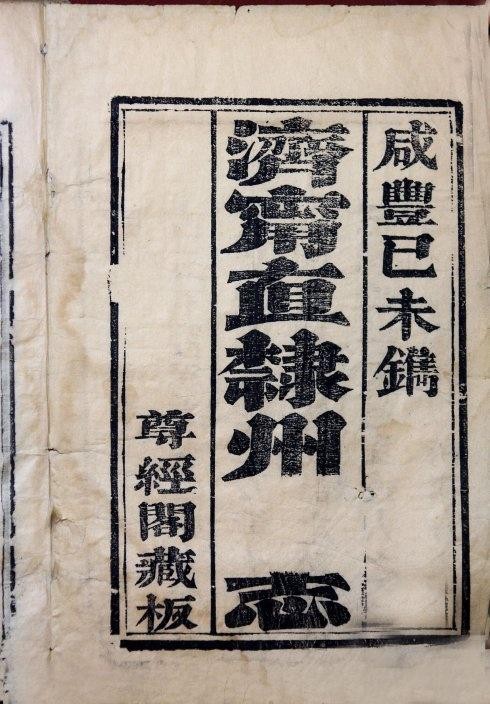 咸豐己未鐫
濟甯直隸州志
尊經閣藏板